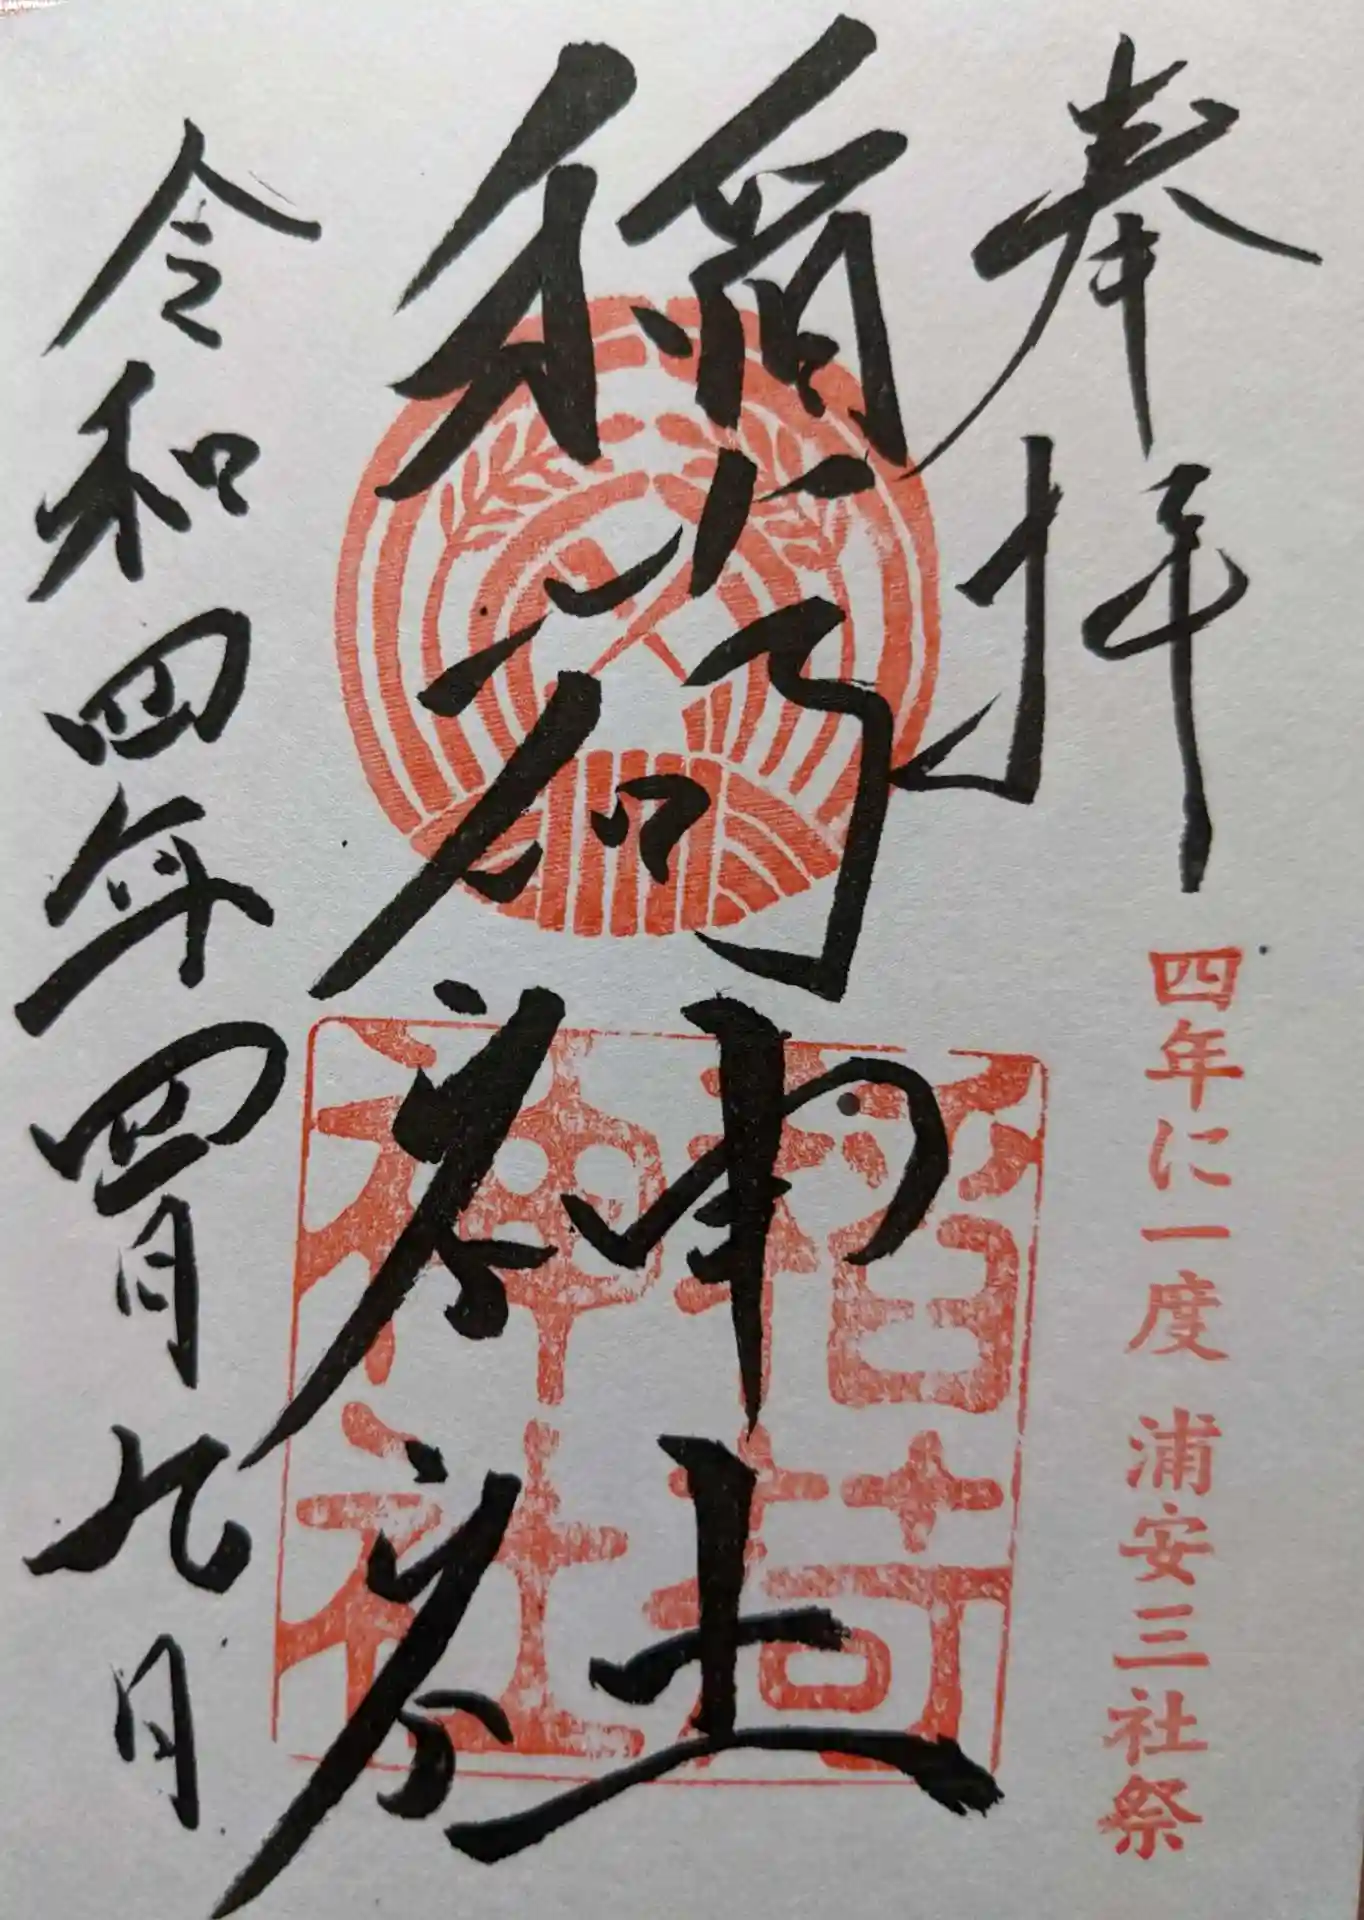 奉拝
四年に一度 浦安三社祭
稲荷神社
稲荷神社
令和四年四月九日